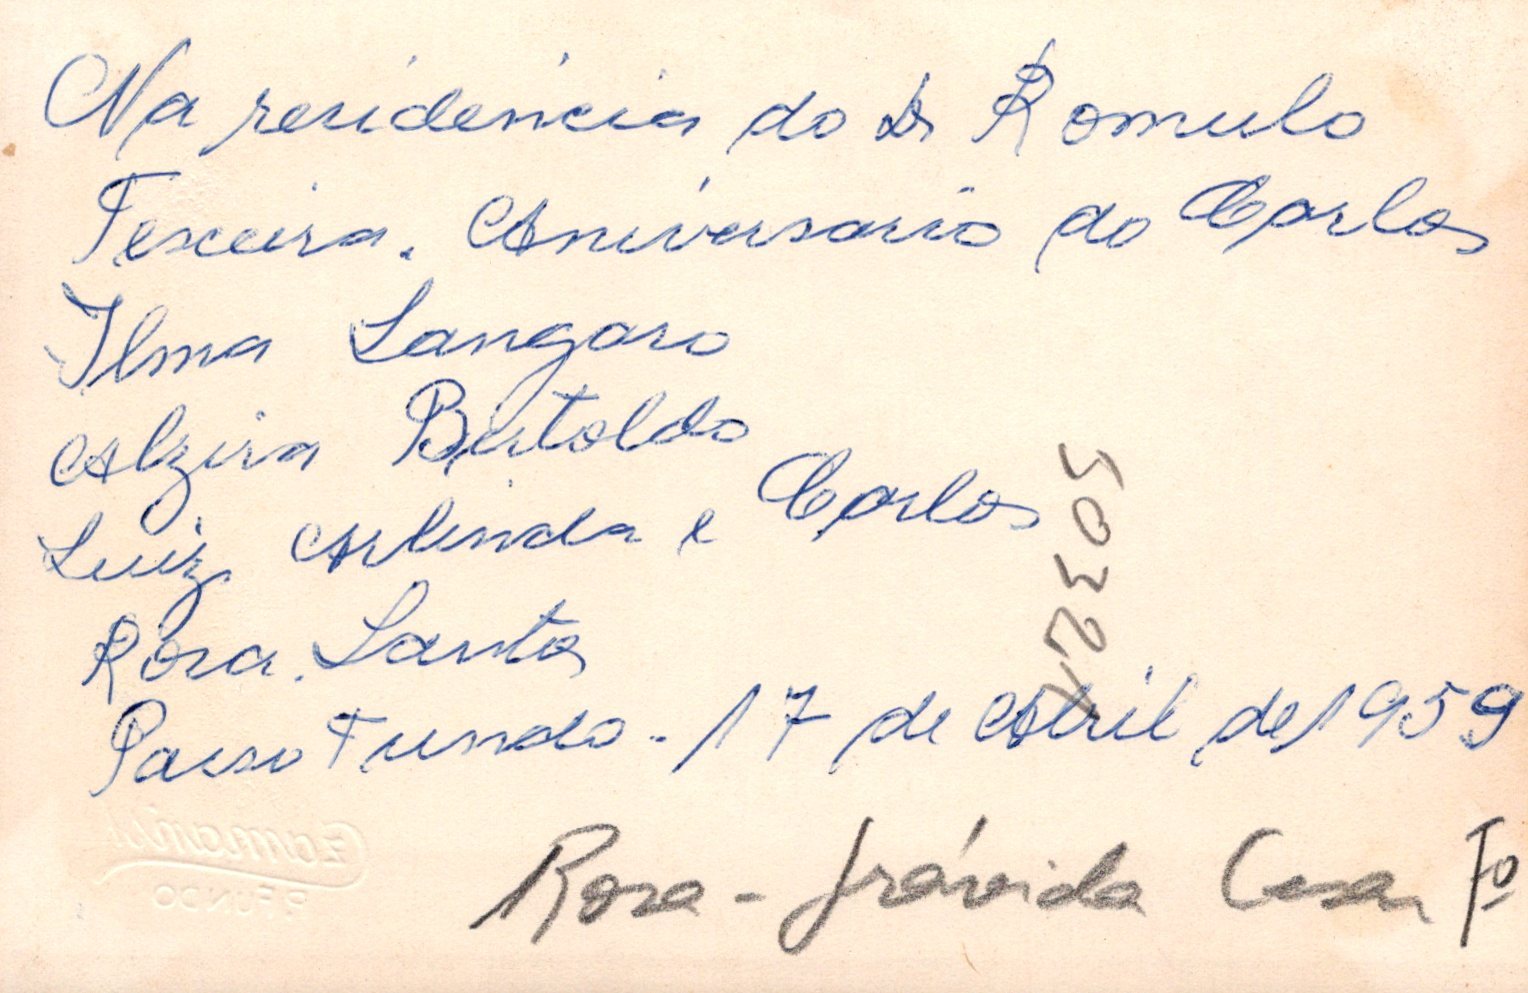 Na residência do Dr Romulo
Texeira. Aniversario do Carlos
Ilma Langaro
Alzira Bertoldo
Luiz Arlinda e Carlos
Rosa. Santos
Passo Fundo - 17 de Abril de 1959
Rosa - grávida Cesar Fº
5032
P. FUNDO